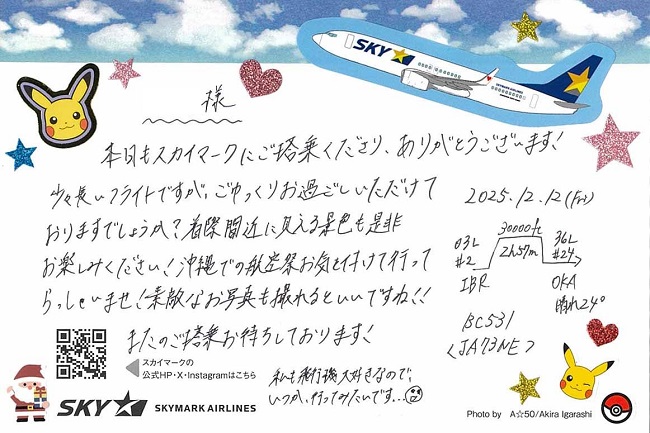 SKY
SKYMARK AIRLINES
様
本日もスカイマークにご搭乗くださり、ありがとうございます！
少々長いフライトですが、ごゆっくりお過ごしいただけて
おりますでしょうか？着陸間近に見える景色も是非
お楽しみください！沖縄での航空祭お気を付けて行って
らっしゃいませ！素敵なお写真も撮れるといいですね！！
またのご搭乗お待ちしております！
私も飛行機大好きなので、
いつか、行ってみたいです…
2025.12.12(Fri)
30000ft
03L
#2
2h57m
36L
#24
IBR
OKA
晴れ24°
BC531
<JA73NE>
スカイマークの
公式HP・X・Instagramはこちら
SKY
SKYMARK AIRLINES
Photo by A☆50/Akira Igarashi